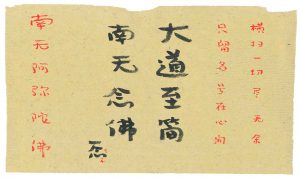 横扫一切尽无余
只留名号在心间
大道至简
南无念佛
南无阿弥陀佛